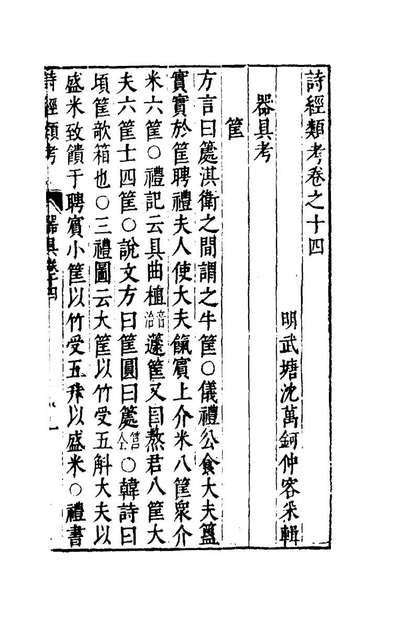 詩經類考卷之十四
明武塘沈萬鈳仲容采輯
器具考
筐
方言曰籧淇衛之間謂之牛筐○儀禮公食大夫簋
實實於筐聘禮夫人使大夫餼賓上介米八筐衆介
米六筐○禮記云具曲植音治籧筐又曰熬君八筐大
夫六筐士四筐○說文方曰筐圓曰籧○韓詩曰
頃筐欹箱也○三禮圖云大筐以竹受五斛大夫以
盛米致饋于聘賓小筐以竹受五斗以盛米○禮書
詩經類考
器具卷十四